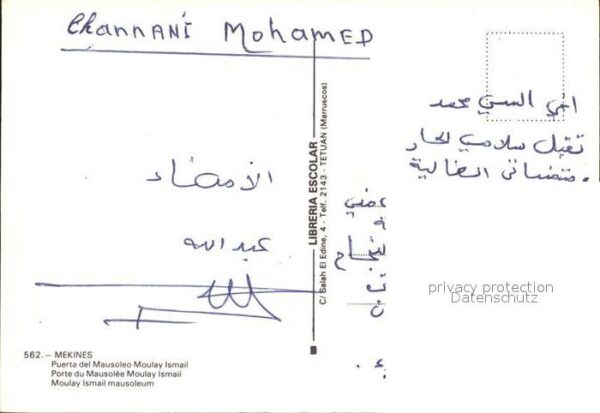 Channani Mohamed
الأمضاء
عبد الله
562. — MEKINES
Puerta del Mausoleo Moulay Ismail
Porte du Mausolée Moulay Ismail
Moulay Ismail mausoleum
LIBRERIA ESCOLAR
C/ Salah El Edine, 4 - Telf. 2143 - TETUAN (Marruecos)
محمد
تقبل سلامي الحار
privacy protection
Datenschutz